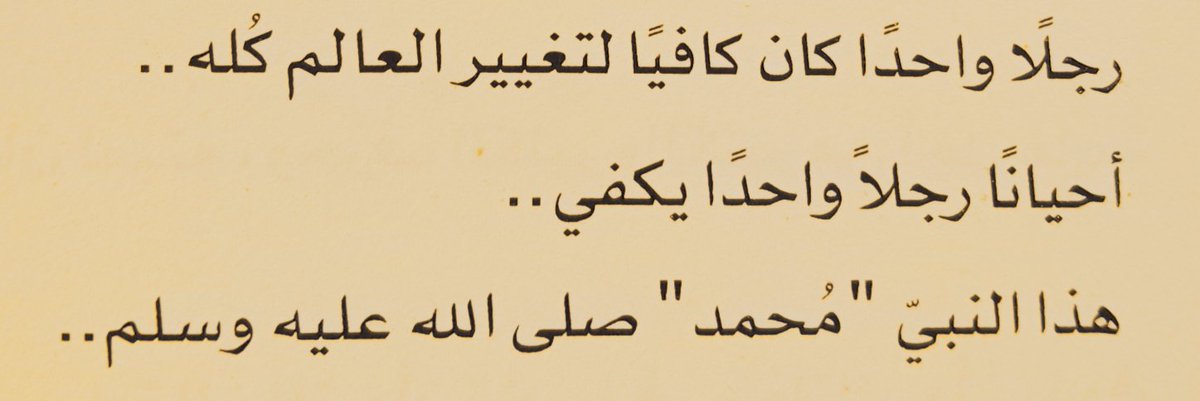 رجلًا واحدًا كان كافيًا لتغيير العالم كُله..
أحيانًا رجلاً واحدًا يكفي..
هذا النبيّ "مُحمد" صلى الله عليه وسلم..